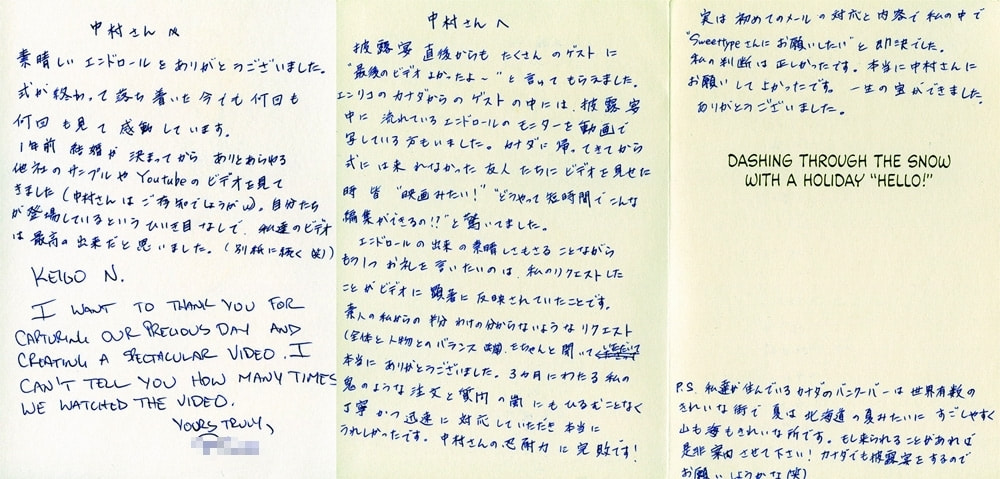 中村さんへ
素晴しいエンドロールをありがとうございました。
式が終わって落ち着いた今でも何回も
何回も見て感動しています。
1年前結婚が決まってからありとあらゆる
他社のサンプルやYoutubeのビデオを見て
きました(中村さんはご存知でしょうがw)。自分たち
が登場しているというひいき目なしで、私達のビデオ
は最高の出来だと思いました。(別紙に続く笑)
KEIGO N.
I WANT TO THANK YOU FOR
CAPTURING OUR PRECIOUS DAY AND
CREATING A SPECTACULAR VIDEO. I
CAN'T TELL YOU HOW MANY TIMES
WE WATCHED THE VIDEO.
YOURS TRULY,
中村さんへ
披露宴直後からもたくさんのゲストに
"最後のビデオよかったよ〜"と言ってもらえました。
エンリコのカナダからのゲストの中には、披露宴
中に流れているエンドロールのモニターを動画で
写している方もいました。カナダに帰ってきてから
式には来れなかった友人たちにビデオを見せた
時皆"映画みたい!""どうやって短時間でこんな
編集ができるの!?"と驚いてました。
エンドロールの出来の素晴しさもさることながら
もう1つお礼を言いたいのは、私のリクエストした
ことがビデオに顕著に反映されていたことです。
素人の私からの半分わけの分からないようなリクエスト
(全体と人物とのバランス等)もちゃんと聞いて
本当にありがとうございました。3ヵ月にわたる私の
鬼のような注文と質問の嵐にもひるむことなく
丁寧かつ迅速に対応していただき本当に
うれしかったです。中村さんの忍耐力に完敗です!
実は初めてのメールの対応と内容で私の中で
"Sweettypeさんにお願いしたい"と即決でした。
私の判断は正しかったです。本当に中村さんに
お願いしてよかったです。一生の宝ができました。
ありがとうございました。
DASHING THROUGH THE SNOW
WITH A HOLIDAY "HELLO!"
P.S. 私達が住んでいるカナダのバンクーバーは世界有数の
きれいな街で夏は北海道の夏みたいにすごしやすく
山も海もきれいな所です。もし来られることがあれば
是非案内させて下さい!カナダでも披露宴をするので
お願いしようかな(笑)